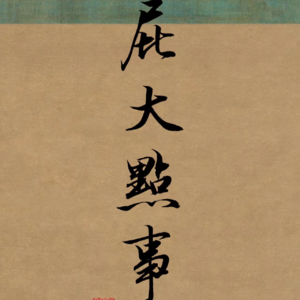 屁大點事